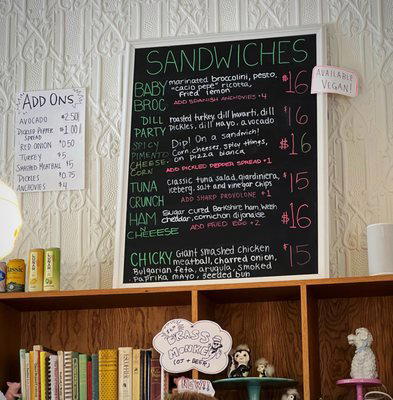 SANDWICHES
BABY BROC
marinated broccolini, pesto,
"cacio pepe" ricotta,
fried lemon
$16
ADD SPANISH ANCHOVIES +4
AVAILABLE
VEGAN!
DILL PARTY
roasted turkey, dill havarti, dill
pickles, dill mayo, avocado
$16
SPICY PIMENTO CHEESE CORN
Dip! On a sandwich!
Corn, cheesey, spicy things,
on pizza bianca
$16
ADD PICKLED PEPPER SPREAD +1
TUNA CRUNCH
classic tuna salad, giardiniera,
iceberg, salt and vinegar chips
$15
ADD SHARP PROVOLONE +1
HAM N CHEEESE
Sugar cured Berkshire ham, Welsh
cheddar, cornichon dijonaise
$16
ADD FRIED EGG +2
CHICKY
Giant smashed chicken
meatball, charred onion,
Bulgarian feta, arugula, smoked
paprika mayo, seeded bun
$15
ADD ONS
AVOCADO 2.50
PICKLED PEPPER SPREAD 1.00
RED ONION $0.50
TURKEY $5
SMASHED MEATBALL $5
PICKLES $0.75
ANCHOVIES $4
GRASS
MONKEY
NEW!